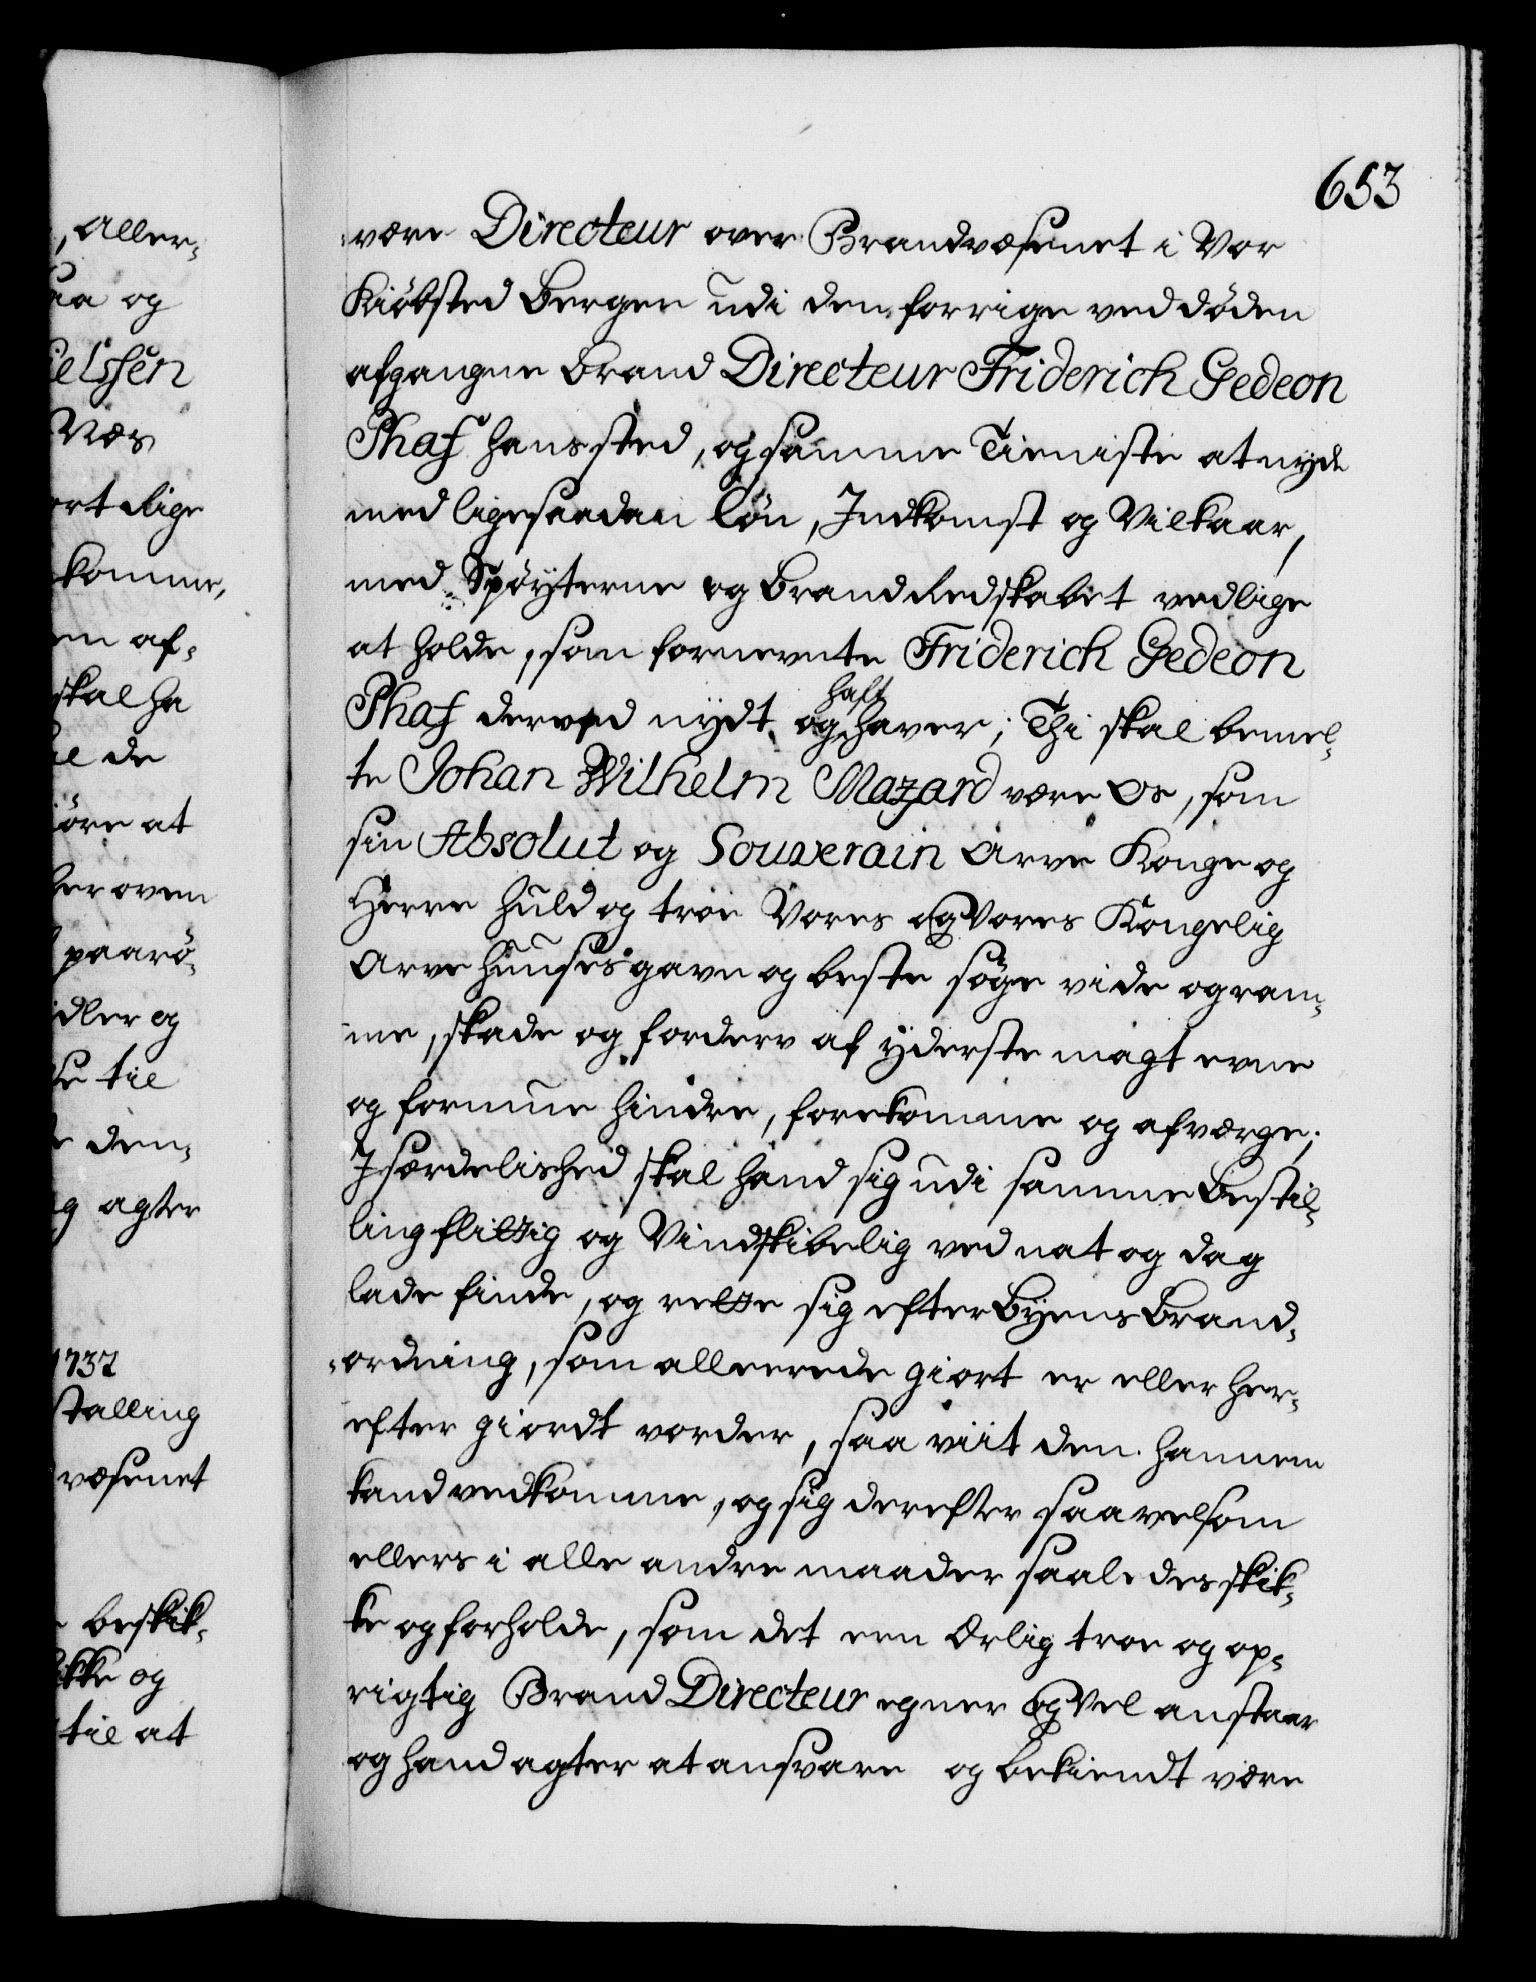 653
, Aller-
aa og
elssen
Næs
ort lige
komme,
en af-
skal ha
al de
iøre at
her oven
paarø-
idler og
se til
den-
og agter
1737
stalling
væsenet
beskik-
ikke og
til at
være Directeur over Brandvæsenet i Vor
Kiöbsted Bergen udi den forrige ved döden
afgangne Brand Directeur Friderich Gedeon
Phaf hans sted, og samme Tieniste at nyde
med ligesaadan Løn, Indkomst og Vilkaar,
med Spöyterne og Brand Redskabet vedlige
at holde, som fornevnte Friderich Gedeon
Phaf derved nydt og haft haver; Thi skal bemel-
te Johan Wilhelm Mazard være Os, som
sin Absolut og Souverain Arve Konge og
Herre huld og troe Vores og Vores Kongelig
Arve Huuses gavn og beste søge vide og ram-
me, skade og forderv af yderste magt evne
og formue hindre, forekomme og afværge;
Isærdelished skal hand sig udi samme Bestil-
ling flittig og Vindskibelig ved nat og dag
lade finde, og rette sig efter Byens Brand-
ordning, som allereede giort er eller her-
efter giordt vorder, saa viit den hannem
kand vedkomme, og sig derefter saavelsom
ellers i alle andre maader saaledes skik-
ke og forholde, som det een Ærlig troe og op-
rigtig Brand Directeur egner og Vel anstaar
og hand agter at ansvare og bekiendt være